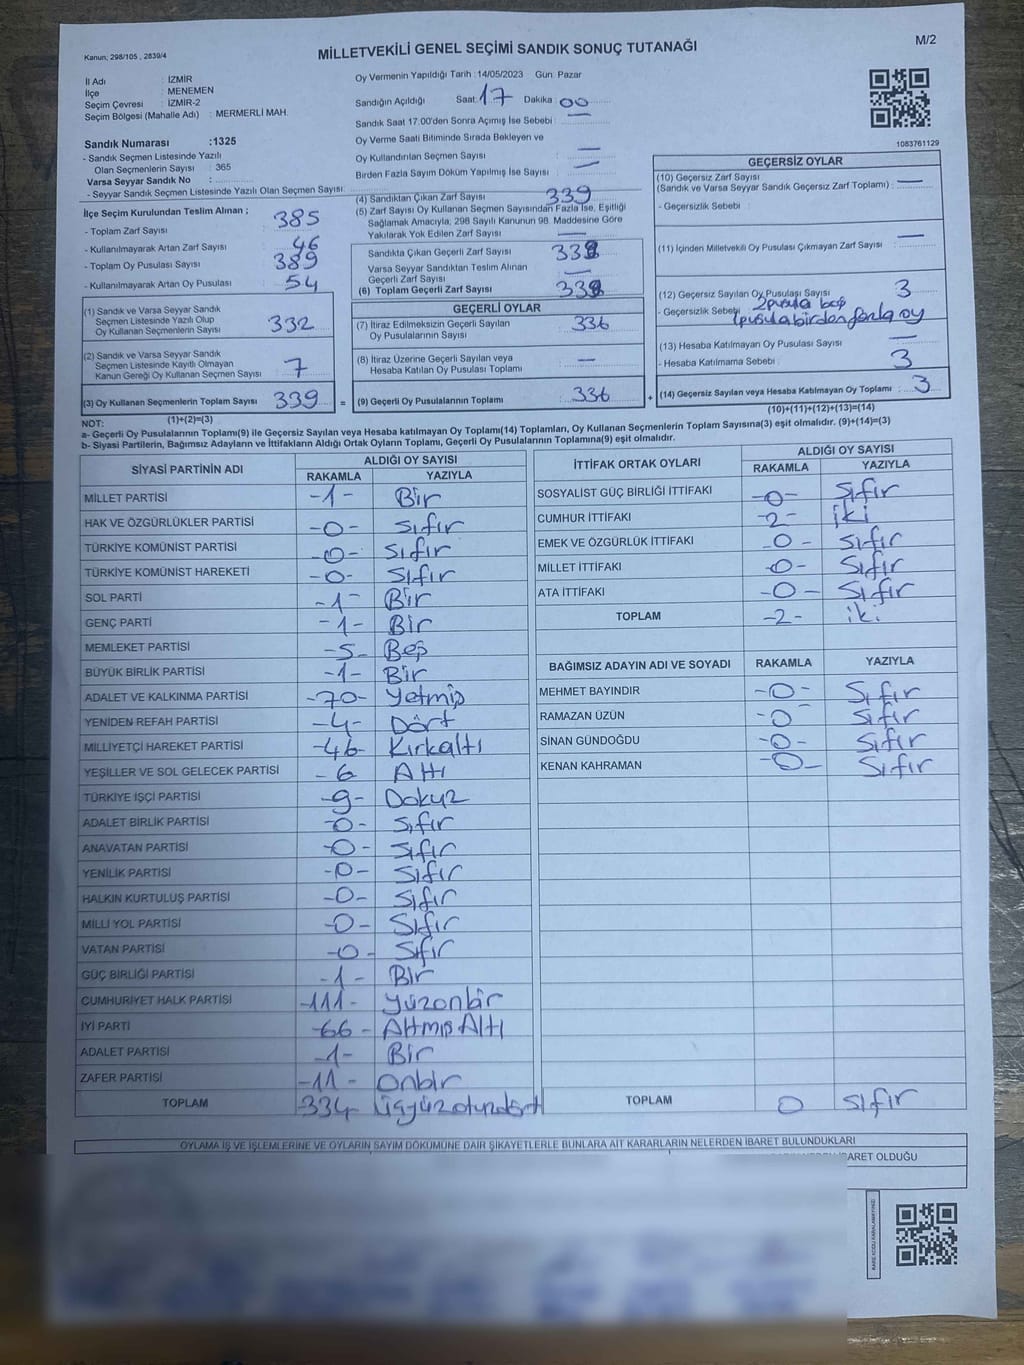 Kanun; 298/105 , 2839/4
MİLLETVEKİLİ GENEL SEÇİMİ SANDIK SONUÇ TUTANAĞI
M/2
İl Adı : İZMİR
İlçe : MENEMEN
Seçim Çevresi : İZMİR-2
Seçim Bölgesi (Mahalle Adı) : MERMERLİ MAH.
Sandık Numarası :1325
- Sandık Seçmen Listesinde Yazılı
Olan Seçmenlerin Sayısı : 365
Varsa Seyyar Sandık No :
- Seyyar Sandık Seçmen Listesinde Yazılı Olan Seçmen Sayısı:
Oy Vermenin Yapıldığı Tarih : 14/05/2023 Gün: Pazar
Sandığın Açıldığı Saat: 17 Dakika 00
Sandık Saat 17:00'den Sonra Açılmış İse Sebebi : —
Oy Verme Saati Bitiminde Sırada Bekleyen ve
Oy Kullandırılan Seçmen Sayısı —
Birden Fazla Sayım Döküm Yapılmış İse Sayısı —
1083761129
İlçe Seçim Kurulundan Teslim Alınan ;
- Toplam Zarf Sayısı 385
- Kullanılmayarak Artan Zarf Sayısı 46
- Toplam Oy Pusulası Sayısı 389
- Kullanılmayarak Artan Oy Pusulası 54
(1) Sandık ve Varsa Seyyar Sandık
Seçmen Listesinde Yazılı Olup
Oy Kullanan Seçmenlerin Sayısı 332
(2) Sandık ve Varsa Seyyar Sandık
Seçmen Listesinde Kayıtlı Olmayan
Kanun Gereği Oy Kullanan Seçmen Sayısı 7
(3) Oy Kullanan Seçmenlerin Toplam Sayısı 339
(1)+(2)=(3)
(4) Sandıktan Çıkan Zarf Sayısı 339
(5) Zarf Sayısı Oy Kullanan Seçmen Sayısından Fazla İse, Eşitliği
Sağlamak Amacıyla, 298 Sayılı Kanunun 98. Maddesine Göre
Yakılarak Yok Edilen Zarf Sayısı —
Sandıkta Çıkan Geçerli Zarf Sayısı 339
Varsa Seyyar Sandıktan Teslim Alınan
Geçerli Zarf Sayısı —
(6) Toplam Geçerli Zarf Sayısı 339
GEÇERLİ OYLAR
(7) İtiraz Edilmeksizin Geçerli Sayılan
Oy Pusulalarının Sayısı 336
(8) İtiraz Üzerine Geçerli Sayılan veya
Hesaba Katılan Oy Pusulası Toplamı —
= (9) Geçerli Oy Pusulalarının Toplamı : 336 +
GEÇERSİZ OYLAR
(10) Geçersiz Zarf Sayısı
(Sandık ve Varsa Seyyar Sandık Geçersiz Zarf Toplamı) : —
- Geçersizlik Sebebi :
(11) İçinden Milletvekili Oy Pusulası Çıkmayan Zarf Sayısı : —
(12) Geçersiz Sayılan Oy Pusulası Sayısı 3
- Geçersizlik Sebebi 2 pusula boş
1 pusula birden fazla oy
(13) Hesaba Katılmayan Oy Pusulası Sayısı —
- Hesaba Katılmama Sebebi : 3
(14) Geçersiz Sayılan veya Hesaba Katılmayan Oy Toplamı : 3
(10)+(11)+(12)+(13)=(14)
NOT:
a- Geçerli Oy Pusulalarının Toplamı(9) ile Geçersiz Sayılan veya Hesaba katılmayan Oy Toplamı(14) Toplamları, Oy Kullanan Seçmenlerin Toplam Sayısına(3) eşit olmalıdır. (9)+(14)=(3)
b- Siyasi Partilerin, Bağımsız Adayların ve İttifakların Aldığı Ortak Oyların Toplamı, Geçerli Oy Pusulalarının Toplamına(9) eşit olmalıdır.
SİYASİ PARTİNİN ADI
ALDIĞI OY SAYISI
RAKAMLA YAZIYLA
MİLLET PARTİSİ -1- Bir
HAK VE ÖZGÜRLÜKLER PARTİSİ -0- Sıfır
TÜRKİYE KOMÜNİST PARTİSİ -0- Sıfır
TÜRKİYE KOMÜNİST HAREKETİ -0- Sıfır
SOL PARTİ -1- Bir
GENÇ PARTİ -1- Bir
MEMLEKET PARTİSİ -5- Beş
BÜYÜK BİRLİK PARTİSİ -1- Bir
ADALET VE KALKINMA PARTİSİ -70- Yetmiş
YENİDEN REFAH PARTİSİ -4- Dört
MİLLİYETÇİ HAREKET PARTİSİ -46- Kırkaltı
YEŞİLLER VE SOL GELECEK PARTİSİ -6 Altı
TÜRKİYE İŞÇİ PARTİSİ -9- Dokuz
ADALET BİRLİK PARTİSİ -0- Sıfır
ANAVATAN PARTİSİ -0- Sıfır
YENİLİK PARTİSİ -0- Sıfır
HALKIN KURTULUŞ PARTİSİ -0- Sıfır
MİLLİ YOL PARTİSİ -0- Sıfır
VATAN PARTİSİ -0- Sıfır
GÜÇ BİRLİĞİ PARTİSİ -1- Bir
CUMHURİYET HALK PARTİSİ -111- Yüzonbir
İYİ PARTİ -66- Altmış Altı
ADALET PARTİSİ -1- Bir
ZAFER PARTİSİ -11- Onbir
TOPLAM -334- Üçyüzotuzdört
İTTİFAK ORTAK OYLARI
ALDIĞI OY SAYISI
RAKAMLA YAZIYLA
SOSYALİST GÜÇ BİRLİĞİ İTTİFAKI -0- Sıfır
CUMHUR İTTİFAKI -2- İki
EMEK VE ÖZGÜRLÜK İTTİFAKI -0- Sıfır
MİLLET İTTİFAKI -0- Sıfır
ATA İTTİFAKI -0- Sıfır
TOPLAM -2- iki
BAĞIMSIZ ADAYIN ADI VE SOYADI RAKAMLA YAZIYLA
MEHMET BAYINDIR -0- Sıfır
RAMAZAN ÜZÜN -0- Sıfır
SİNAN GÜNDOĞDU -0- Sıfır
KENAN KAHRAMAN -0- Sıfır
TOPLAM 0 Sıfır
OYLAMA İŞ VE İŞLEMLERİNE VE OYLARIN SAYIM DÖKÜMÜNE DAİR ŞİKAYETLERLE BUNLARA AİT KARARLARIN NELERDEN İBARET BULUNDUKLARI
İBARET OLDUĞU
KARE KODU KARALAMAYINIZ!